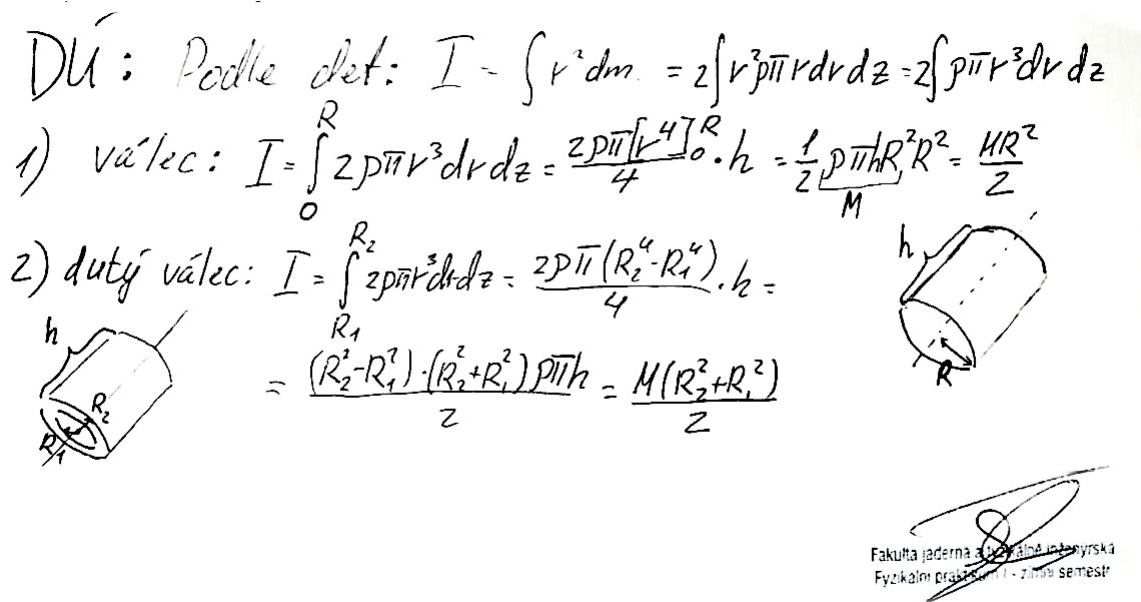 DÚ: Podle def: I = ∫ r² dm = 2∫ r²ρπr dr dz = 2∫ ρπr³ dr dz
1) válec: I = ∫₀ᴿ 2ρπr³ dr dz = 2ρπ[r⁴]₀ᴿ/4 · h = 1/2 ρπhR²R² = MR²/2
M
h
R
2) dutý válec: I = ∫_{R₁}^{R₂} 2ρπr³ dr dz = 2ρπ(R₂⁴-R₁⁴)/4 · h =
= (R₂²-R₁²)·(R₂²+R₁²)ρπh/2 = M(R₂²+R₁²)/2
h
R₂
R₁
Fakulta jaderná a fyzikálně inženýrská
Fyzikální praktikum I - zimní semestr